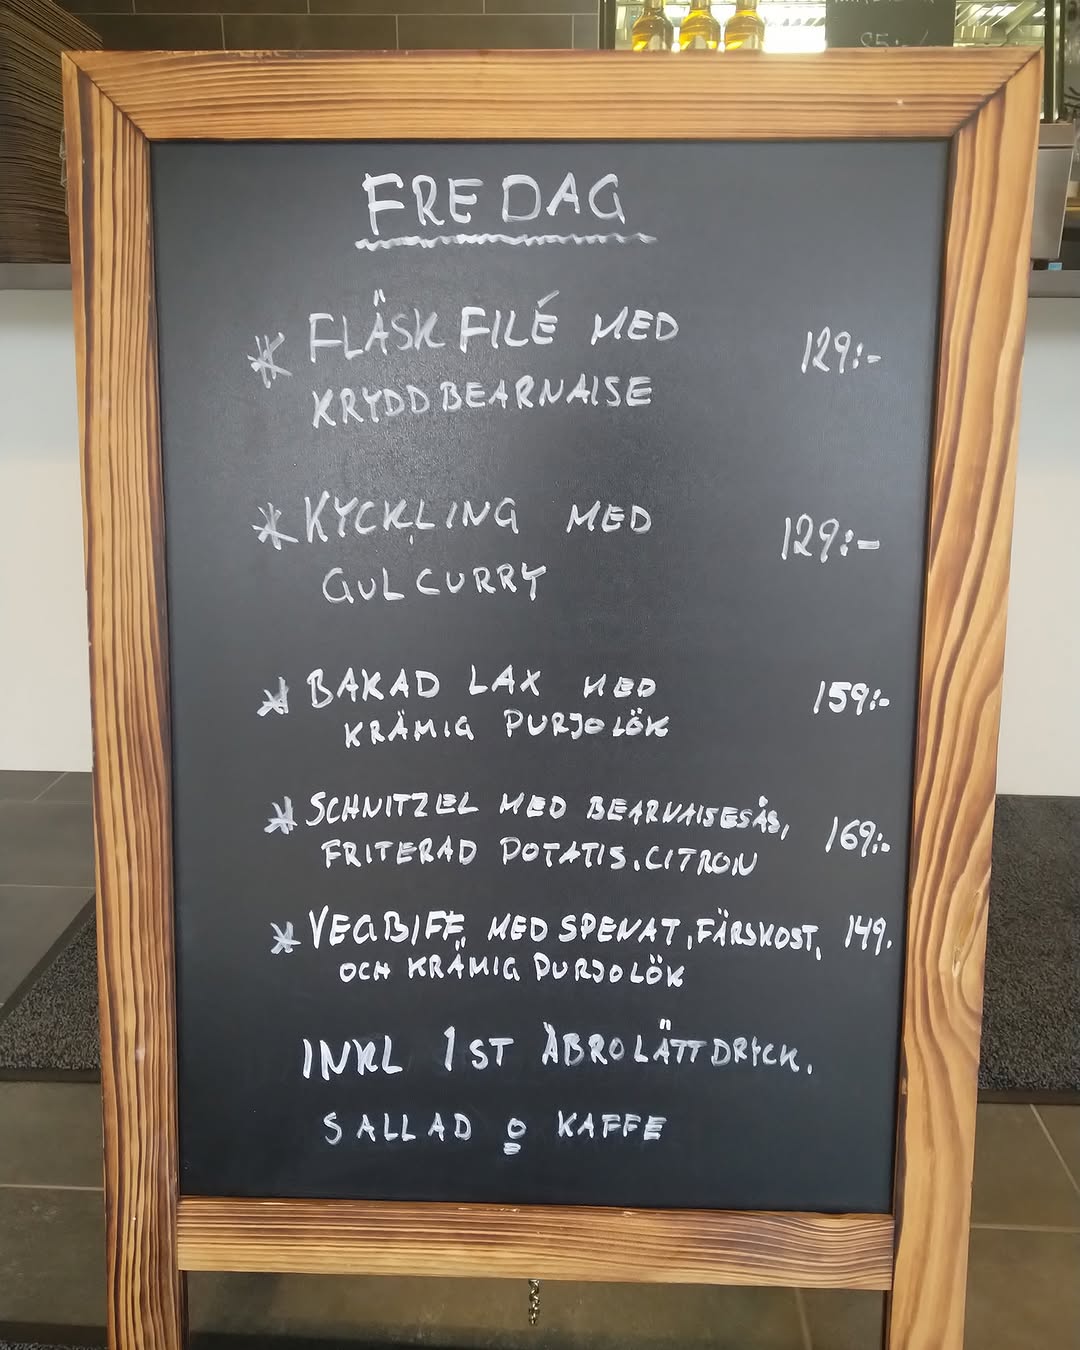 FREDAG
* FLÄSKFILÉ MED 129:-
KRYDDBEARNAISE
* KYCKLING MED 129:-
GUL CURRY
* BAKAD LAX MED 159:-
KRÄMIG PURJOLÖK
* SCHNITZEL MED BEARNAISESÅS, 169:-
FRITERAD POTATIS, CITRON
* VEGBIFF MED SPENAT, FÄRSKOST, 149.
OCH KRÄMIG PURJOLÖK
INKL 1ST ÅBROLÄTTDRYCK.
SALLAD o KAFFE